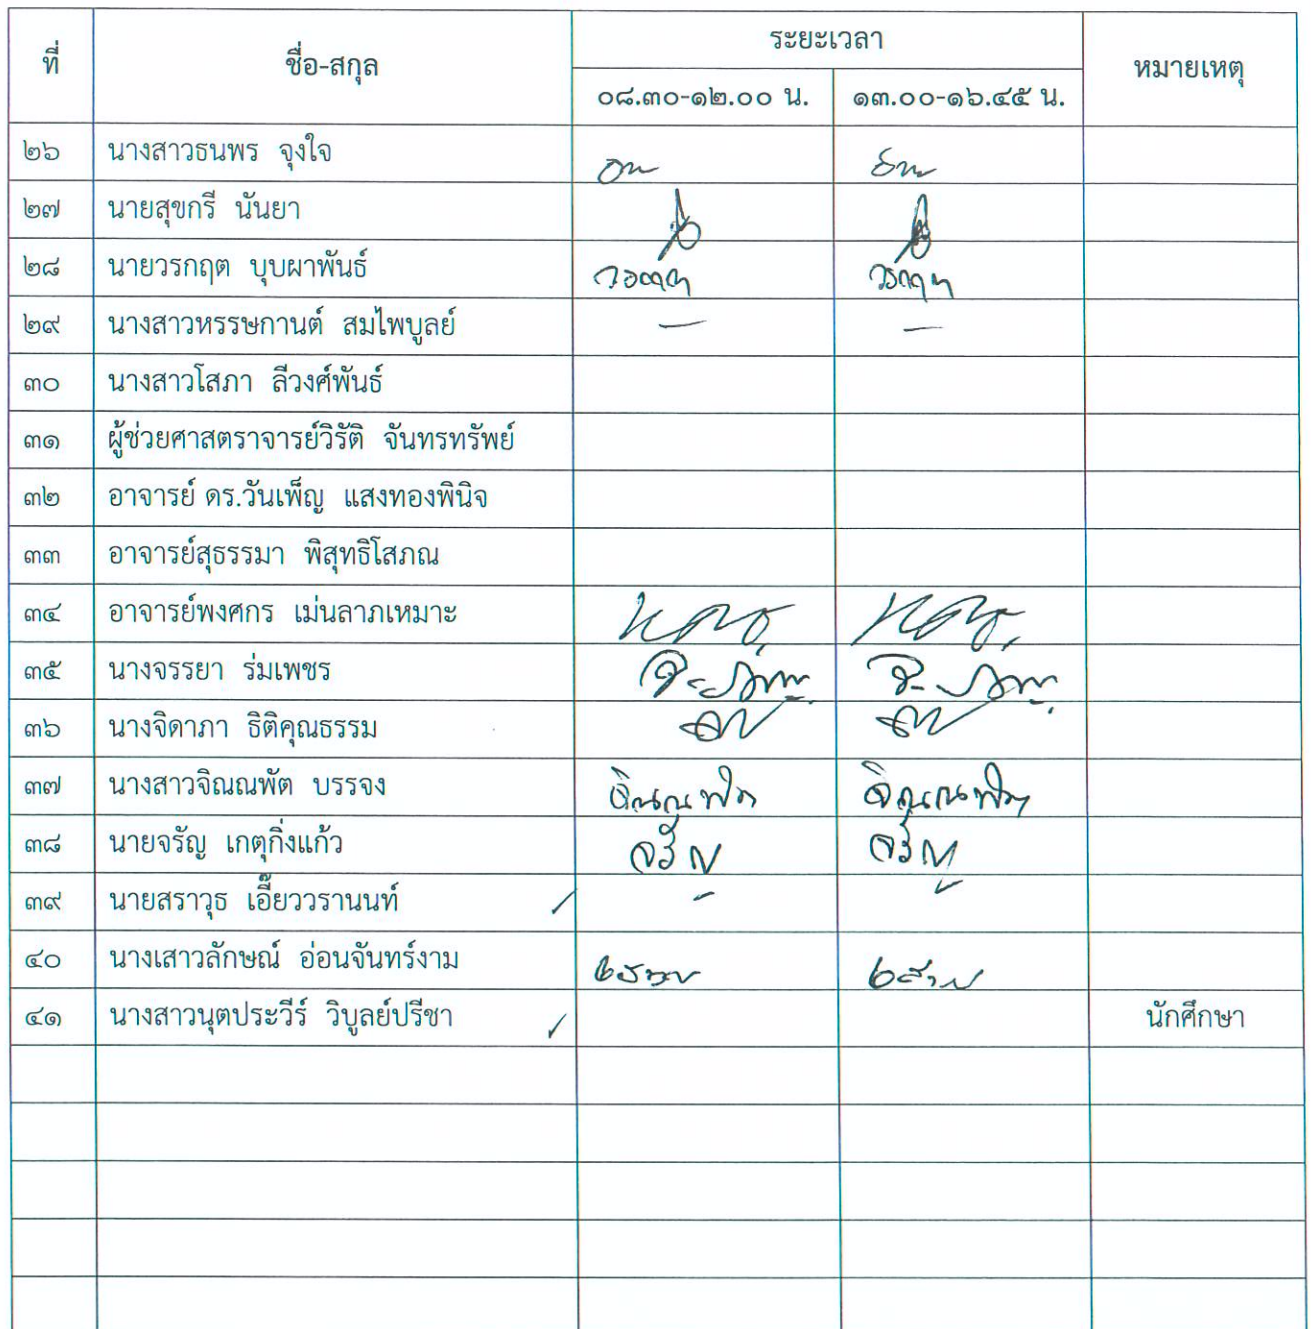 ที่ ชื่อ-สกุล ระยะเวลา หมายเหตุ
๐๘.๓๐-๑๒.๐๐ น. ๑๓.๐๐-๑๖.๔๕ น.
๒๖ นางสาวธนพร จุงใจ
๒๗ นายสุขกรี นันยา
๒๘ นายวรกฤต บุบผาพันธ์
๒๙ นางสาวหรรษกานต์ สมไพบูลย์ — —
๓๐ นางสาวโสภา ลีวงศ์พันธ์
๓๑ ผู้ช่วยศาสตราจารย์วิรัติ จันทรทรัพย์
๓๒ อาจารย์ ดร.วันเพ็ญ แสงทองพินิจ
๓๓ อาจารย์สุธรรมา พิสุทธิโสภณ
๓๔ อาจารย์พงศกร เม่นลาภเหมาะ
๓๕ นางจรรยา ร่มเพชร
๓๖ นางจิดาภา ธิติคุณธรรม
๓๗ นางสาวจิณณพัต บรรจง จิณณพัต จิณณพัต
๓๘ นายจรัญ เกตุกิ่งแก้ว จรัญ จรัญ
๓๙ นายสราวุธ เอี๊ยววรานนท์ - -
๔๐ นางเสาวลักษณ์ อ่อนจันทร์งาม
๔๑ นางสาวนุตประวีร์ วิบูลย์ปรีชา นักศึกษา